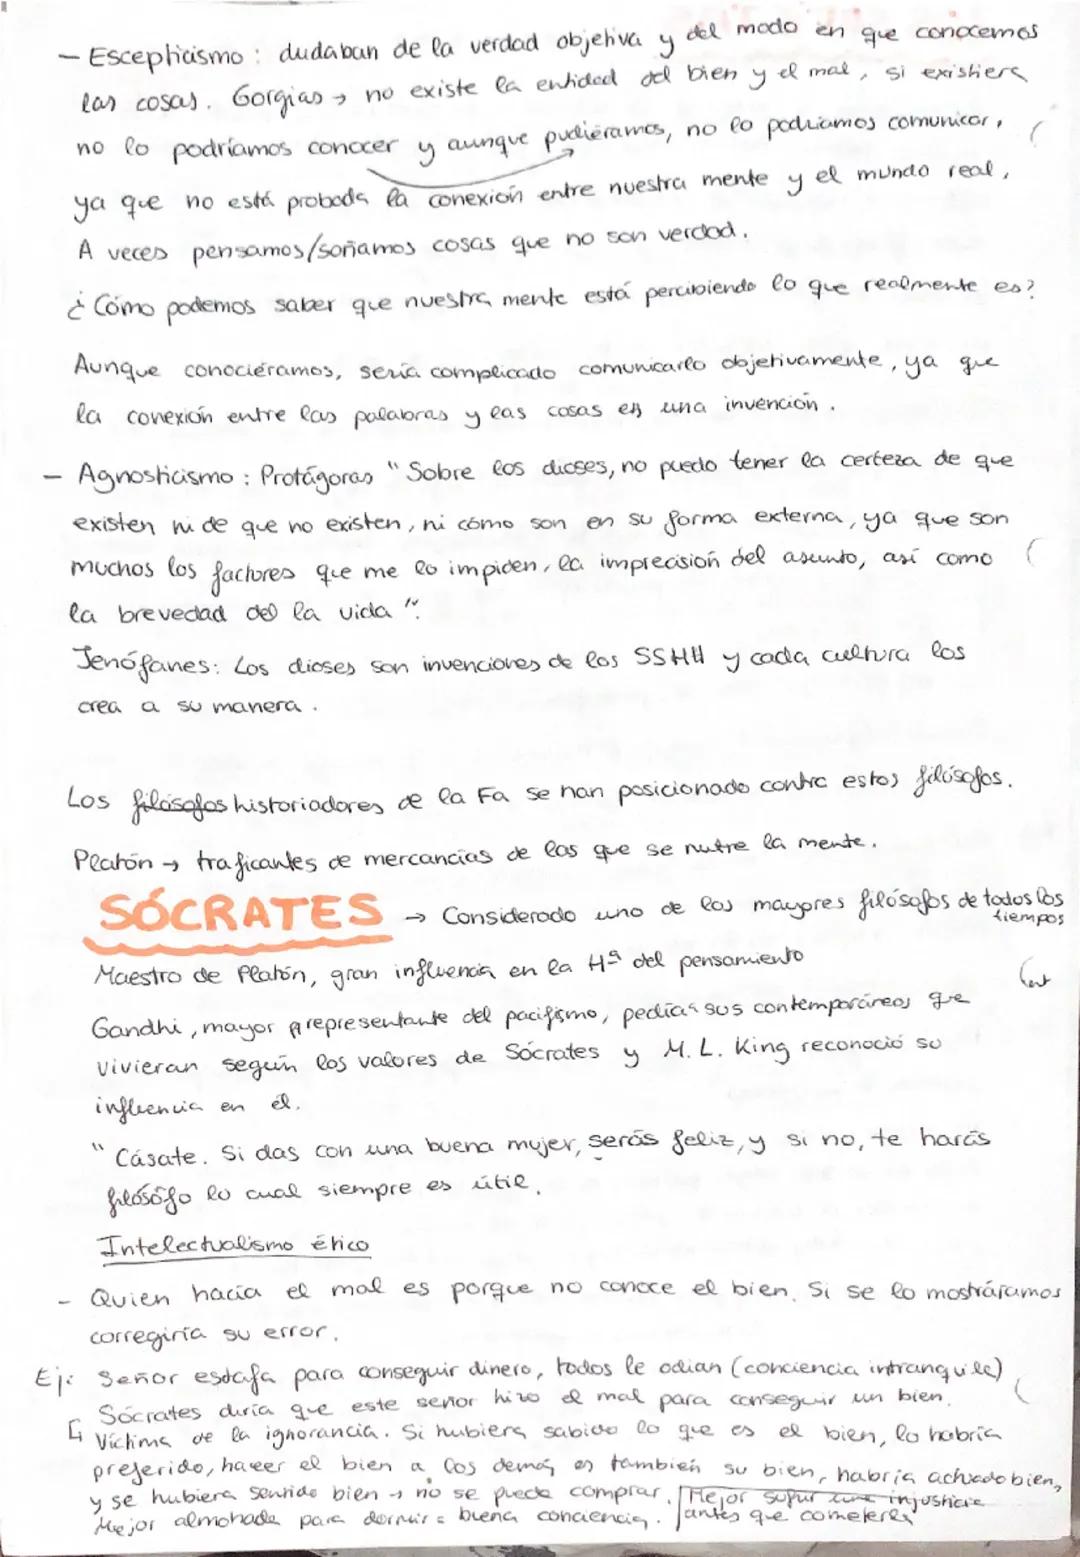 - Escepticismo: dudaban de la verdad objetiva y del modo en que conocemos
las cosas. Gorgias → no existe la entidad del bien y el mal, si existiera
no lo podríamos conocer y aunque pudiéramos, no lo podríamos comunicar,
ya que no está probada la conexión entre nuestra mente y el mundo real,
A veces pensamos/soñamos cosas que no son verdad.
¿Cómo podemos saber que nuestra mente está percibiendo lo que realmente es?
Aunque conociéramos, sería complicado comunicarlo objetivamente, ya que
la conexión entre las palabras y las cosas es una invención.
- Agnosticismo: Protágoras "Sobre los dioses, no puedo tener la certeza de que
existen ni de que no existen, ni cómo son en su forma externa, ya que son
muchos los factores que me lo impiden, la imprecisión del asunto, así como
la brevedad de la vida".
Jenófanes: Los dioses son invenciones de los SSHH y cada cultura los
crea a su manera.
Los filósofos historiadores de la Fa se han posicionado contra estos filósofos.
Platón → traficantes de mercancías de las que se nutre la mente.
SÓCRATES → Considerado uno de los mayores filósofos de todos los
tiempos
Maestro de Platón, gran influencia en la Hª del pensamiento
Gandhi, mayor representante del pacifismo, pedía a sus contemporáneos que
vivieran según los valores de Sócrates y M. L. King reconoció su
influencia en él.
"Cásate. Si das con una buena mujer, serás feliz, y si no, te harás
filósofo lo cual siempre es útil.
Intelectualismo ético
- Quien hacía el mal es porque no conoce el bien. Si se lo mostráramos
corregiría su error.
Ej: Señor estafa para conseguir dinero, todos le odian (conciencia intranquila)
Sócrates diría que este señor hizo el mal para conseguir un bien.
↳ Víctima de la ignorancia. Si hubiera sabido lo que es el bien, lo habría
preferido, hacer el bien a los demás es también su bien, habría actuado bien,
y se hubiera sentido bien → no se puede comprar. Mejor sufrir una injusticia
Mejor almohada para dormir = buena conciencia. antes que cometerla